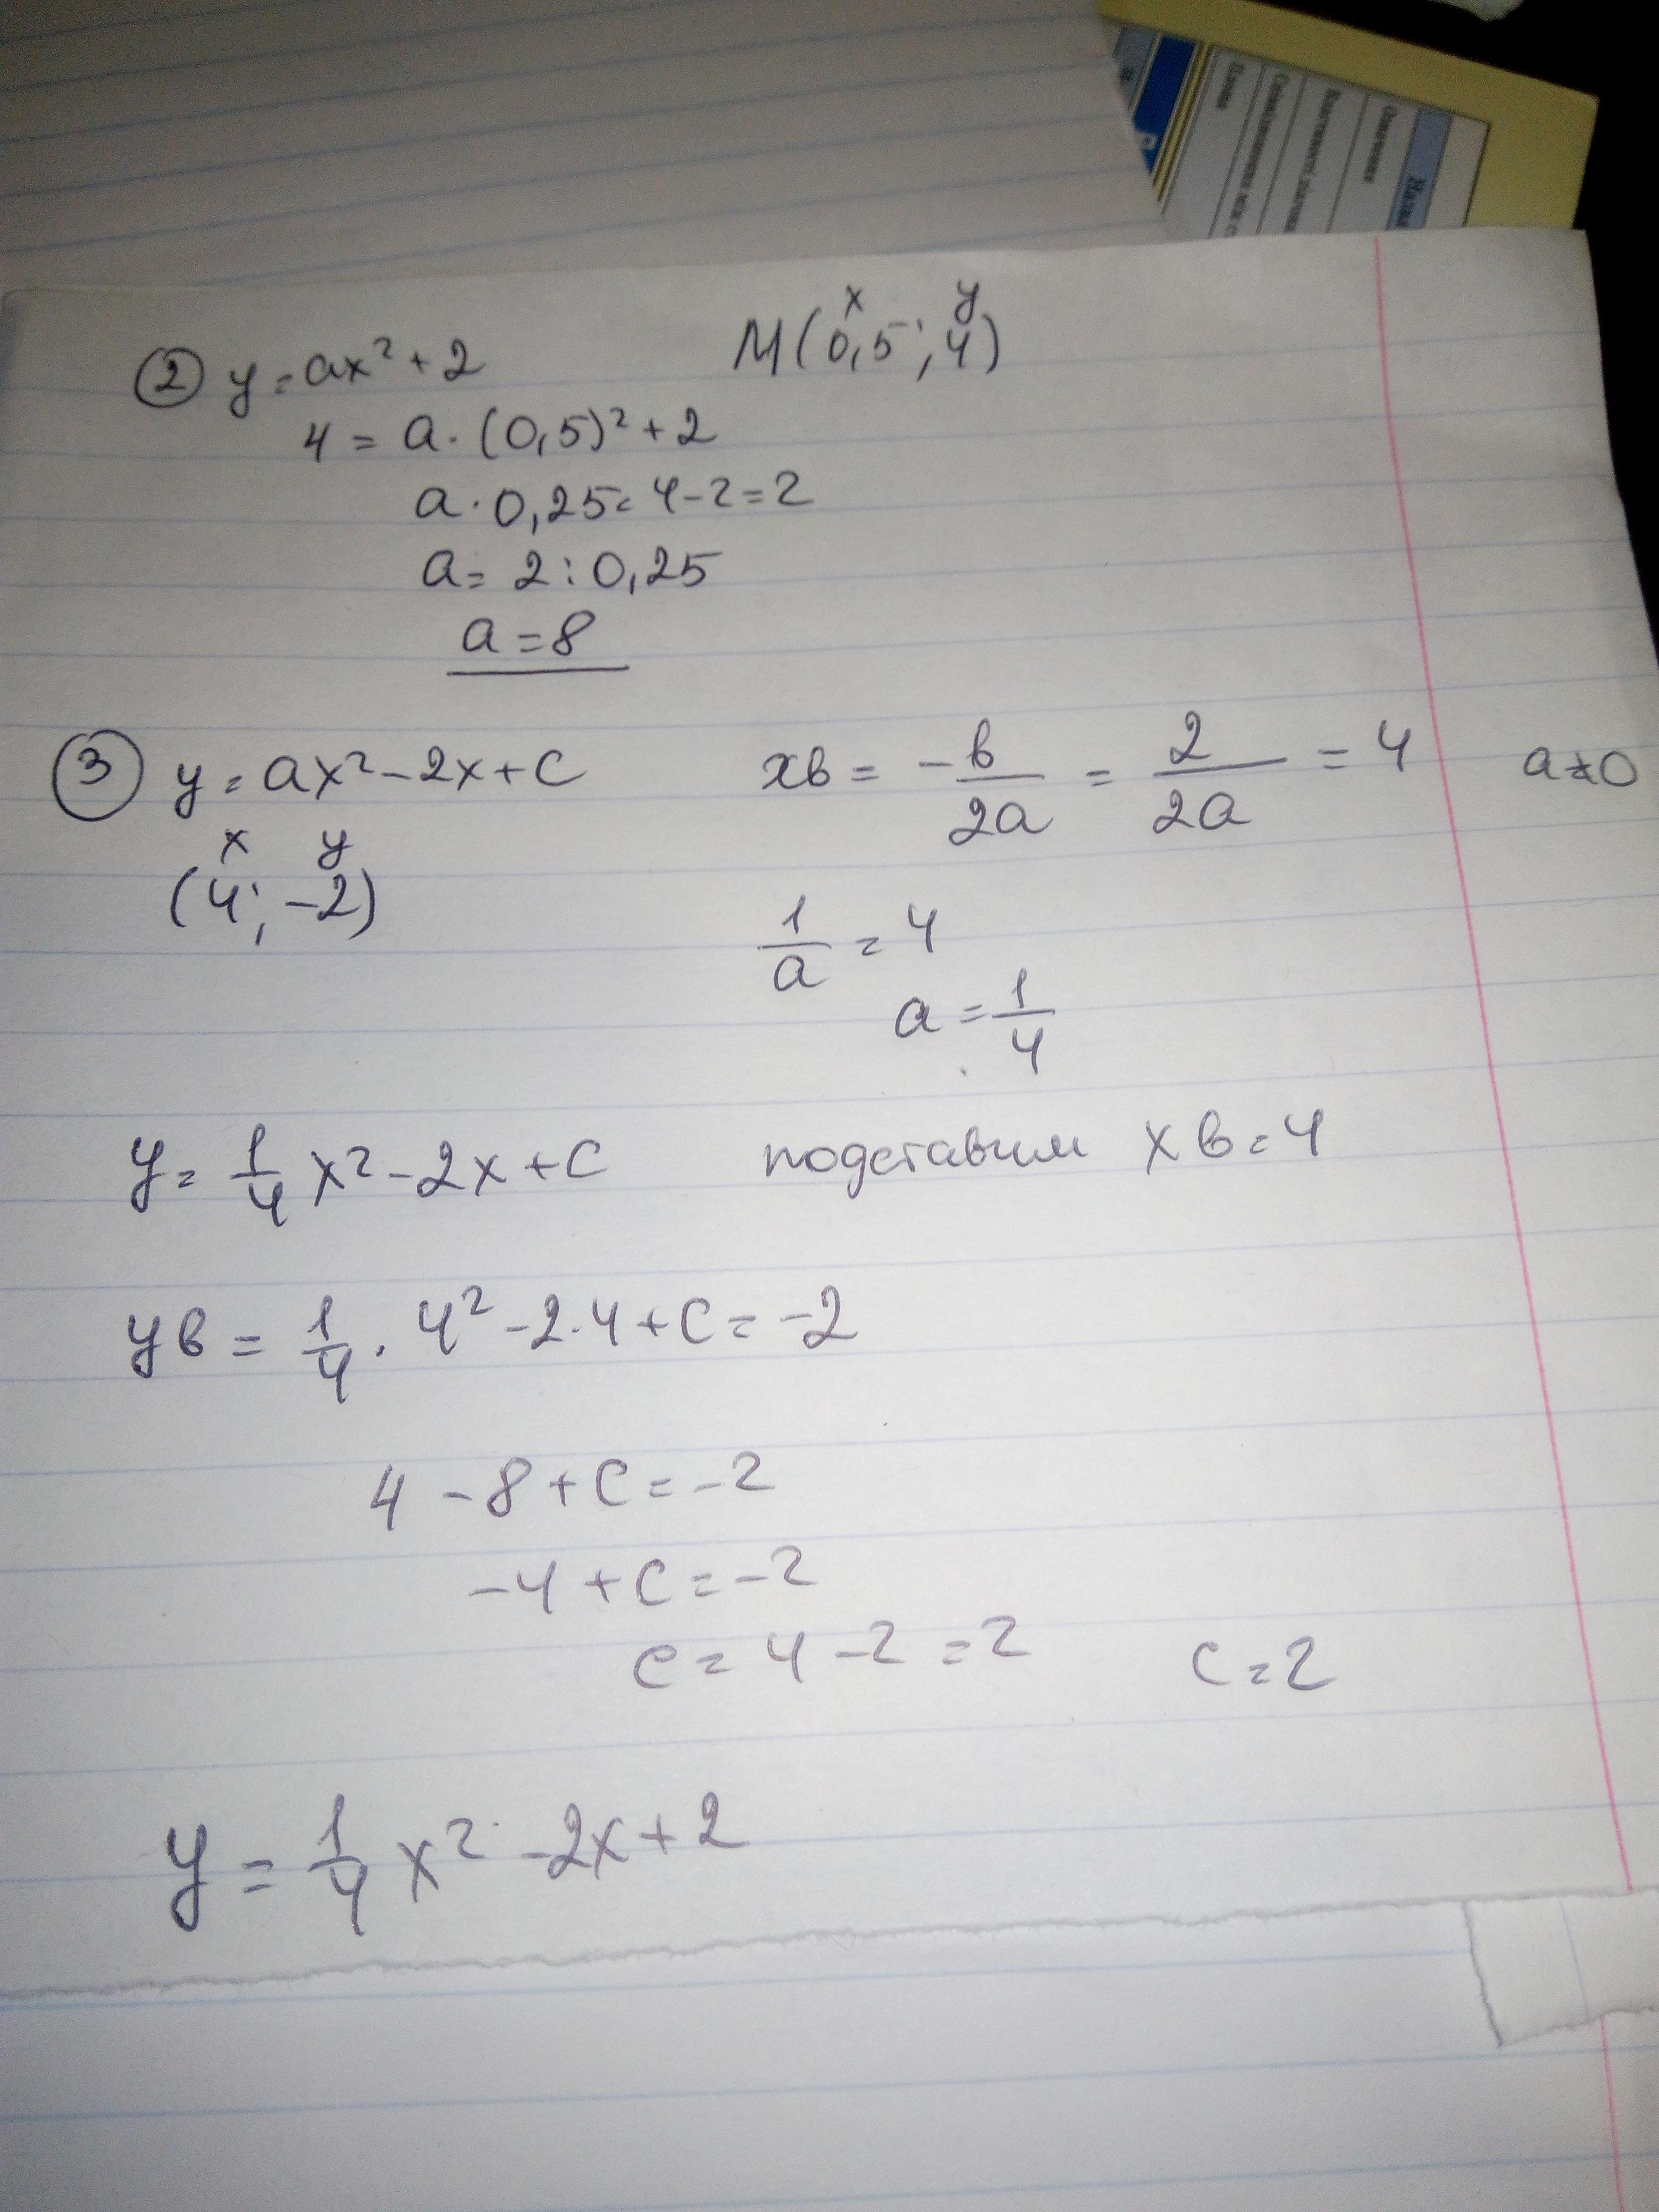 Назва
Означення
План
② y = ax² + 2 M(0,5; 4)
x y
4 = a · (0,5)² + 2
a · 0,25 = 4 - 2 = 2
a = 2 : 0,25
a = 8
③ y = ax² - 2x + c xв = -в/2a = 2/2a = 4 a ≠ 0
x y
(4; -2)
1/a = 4
a = 1/4
y = 1/4 x² - 2x + c подставим xв = 4
yв = 1/4 · 4² - 2·4 + c = -2
4 - 8 + c = -2
-4 + c = -2
c = 4 - 2 = 2 c = 2
y = 1/4 x² - 2x + 2